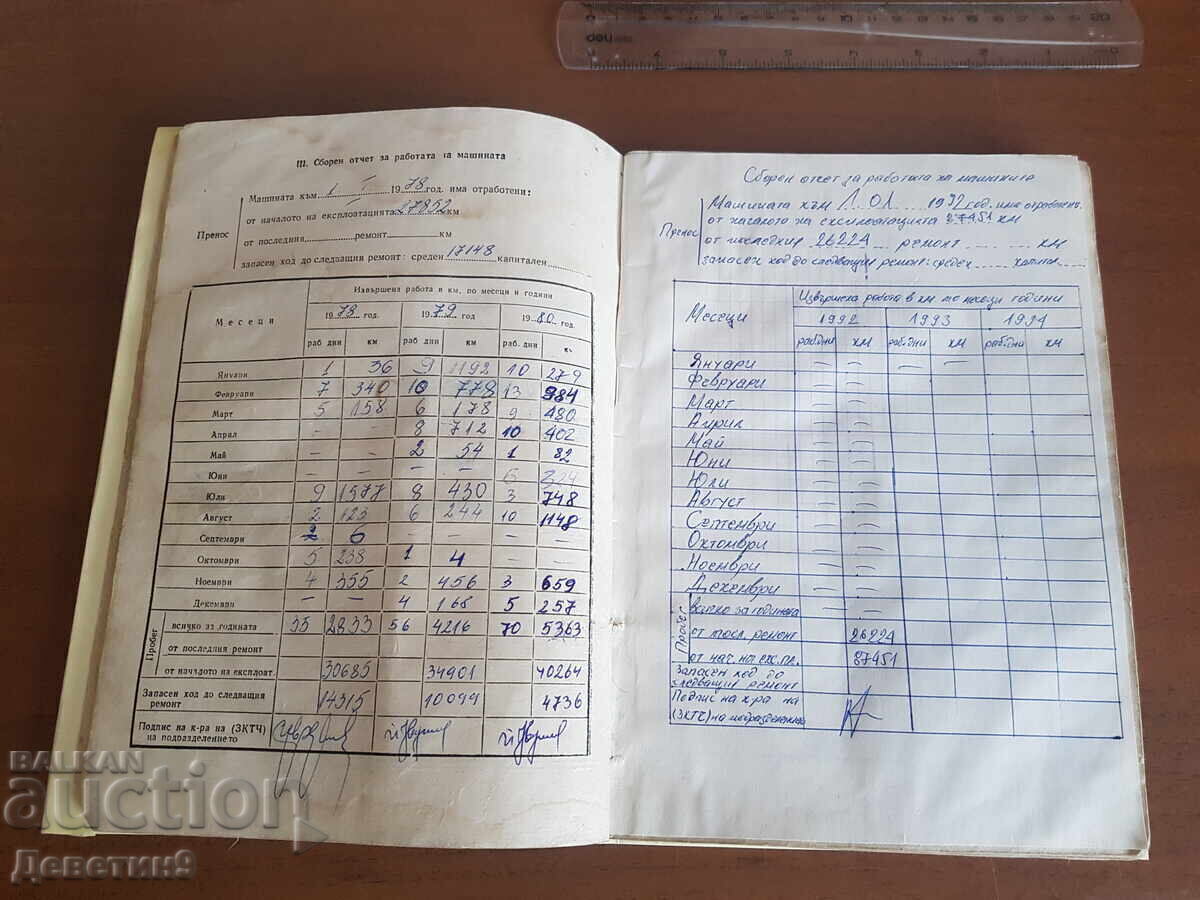 III. Сборен отчет за работата на машината
Машината към 1 I 1978 год. има отработени:
Пренос
от началото на експлоатацията 27852 км
от последния ремонт км
запасен ход до следващия ремонт: среден 17148 капитален
Месеци
Извършена работа в км, по месеци и години
1978 год. 1979 год 1980 год.
раб дни км раб. дни км раб. дни км
Януари 1 36 9 1192 10 279
Февруари 7 340 10 778 13 984
Март 5 158 6 178 9 480
Април – – 8 712 10 402
Май – – 2 54 1 82
Юни – – – – 6 324
Юли 9 1577 8 430 3 748
Август 2 123 6 244 10 1148
Септември 2 6 – – – –
Октомври 5 238 1 4 – –
Ноември 4 355 2 456 3 659
Декември 4 168 5 257
Пробег
всичко за годината 35 2833 56 4216 70 5363
от последния ремонт
от началото на експлоат. 30685 34901 40264
Запасен ход до следващия ремонт 14315 10099 4736
Подпис на к-ра на (ЗКТЧ) на подразделението
Сборен отчет за работата на машината
Машината към 1.01. 1992 год. има отработени
Пренос
от началото на експлоатацията 87451 км
от последния 26224 ремонт км
запасен ход до следващия ремонт: среден
Месеци
Извършена работа в км по месеци години
1992 1993 1994
раб.дни км раб.дни км раб.дни км
Януари – – – –
Февруари – –
Март – –
Април – –
Май – –
Юни – –
Юли – –
Август – –
Септември – –
Октомври – –
Ноември – –
Декември – –
Пробег
всичко за годината – –
от посл. ремонт 26224
от нач. на експл. 87451
Запасен ход до следващия ремонт
Подпис на к-ра на (ЗКТЧ) на подразделението
BALKAN
auction
Деветин9